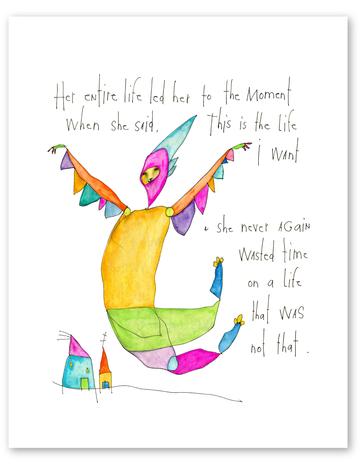 Her entire life led her to the Moment
When she said, This is the life
i want
+ she never AGAiN
wasted time
on a life
that WAS
not that.